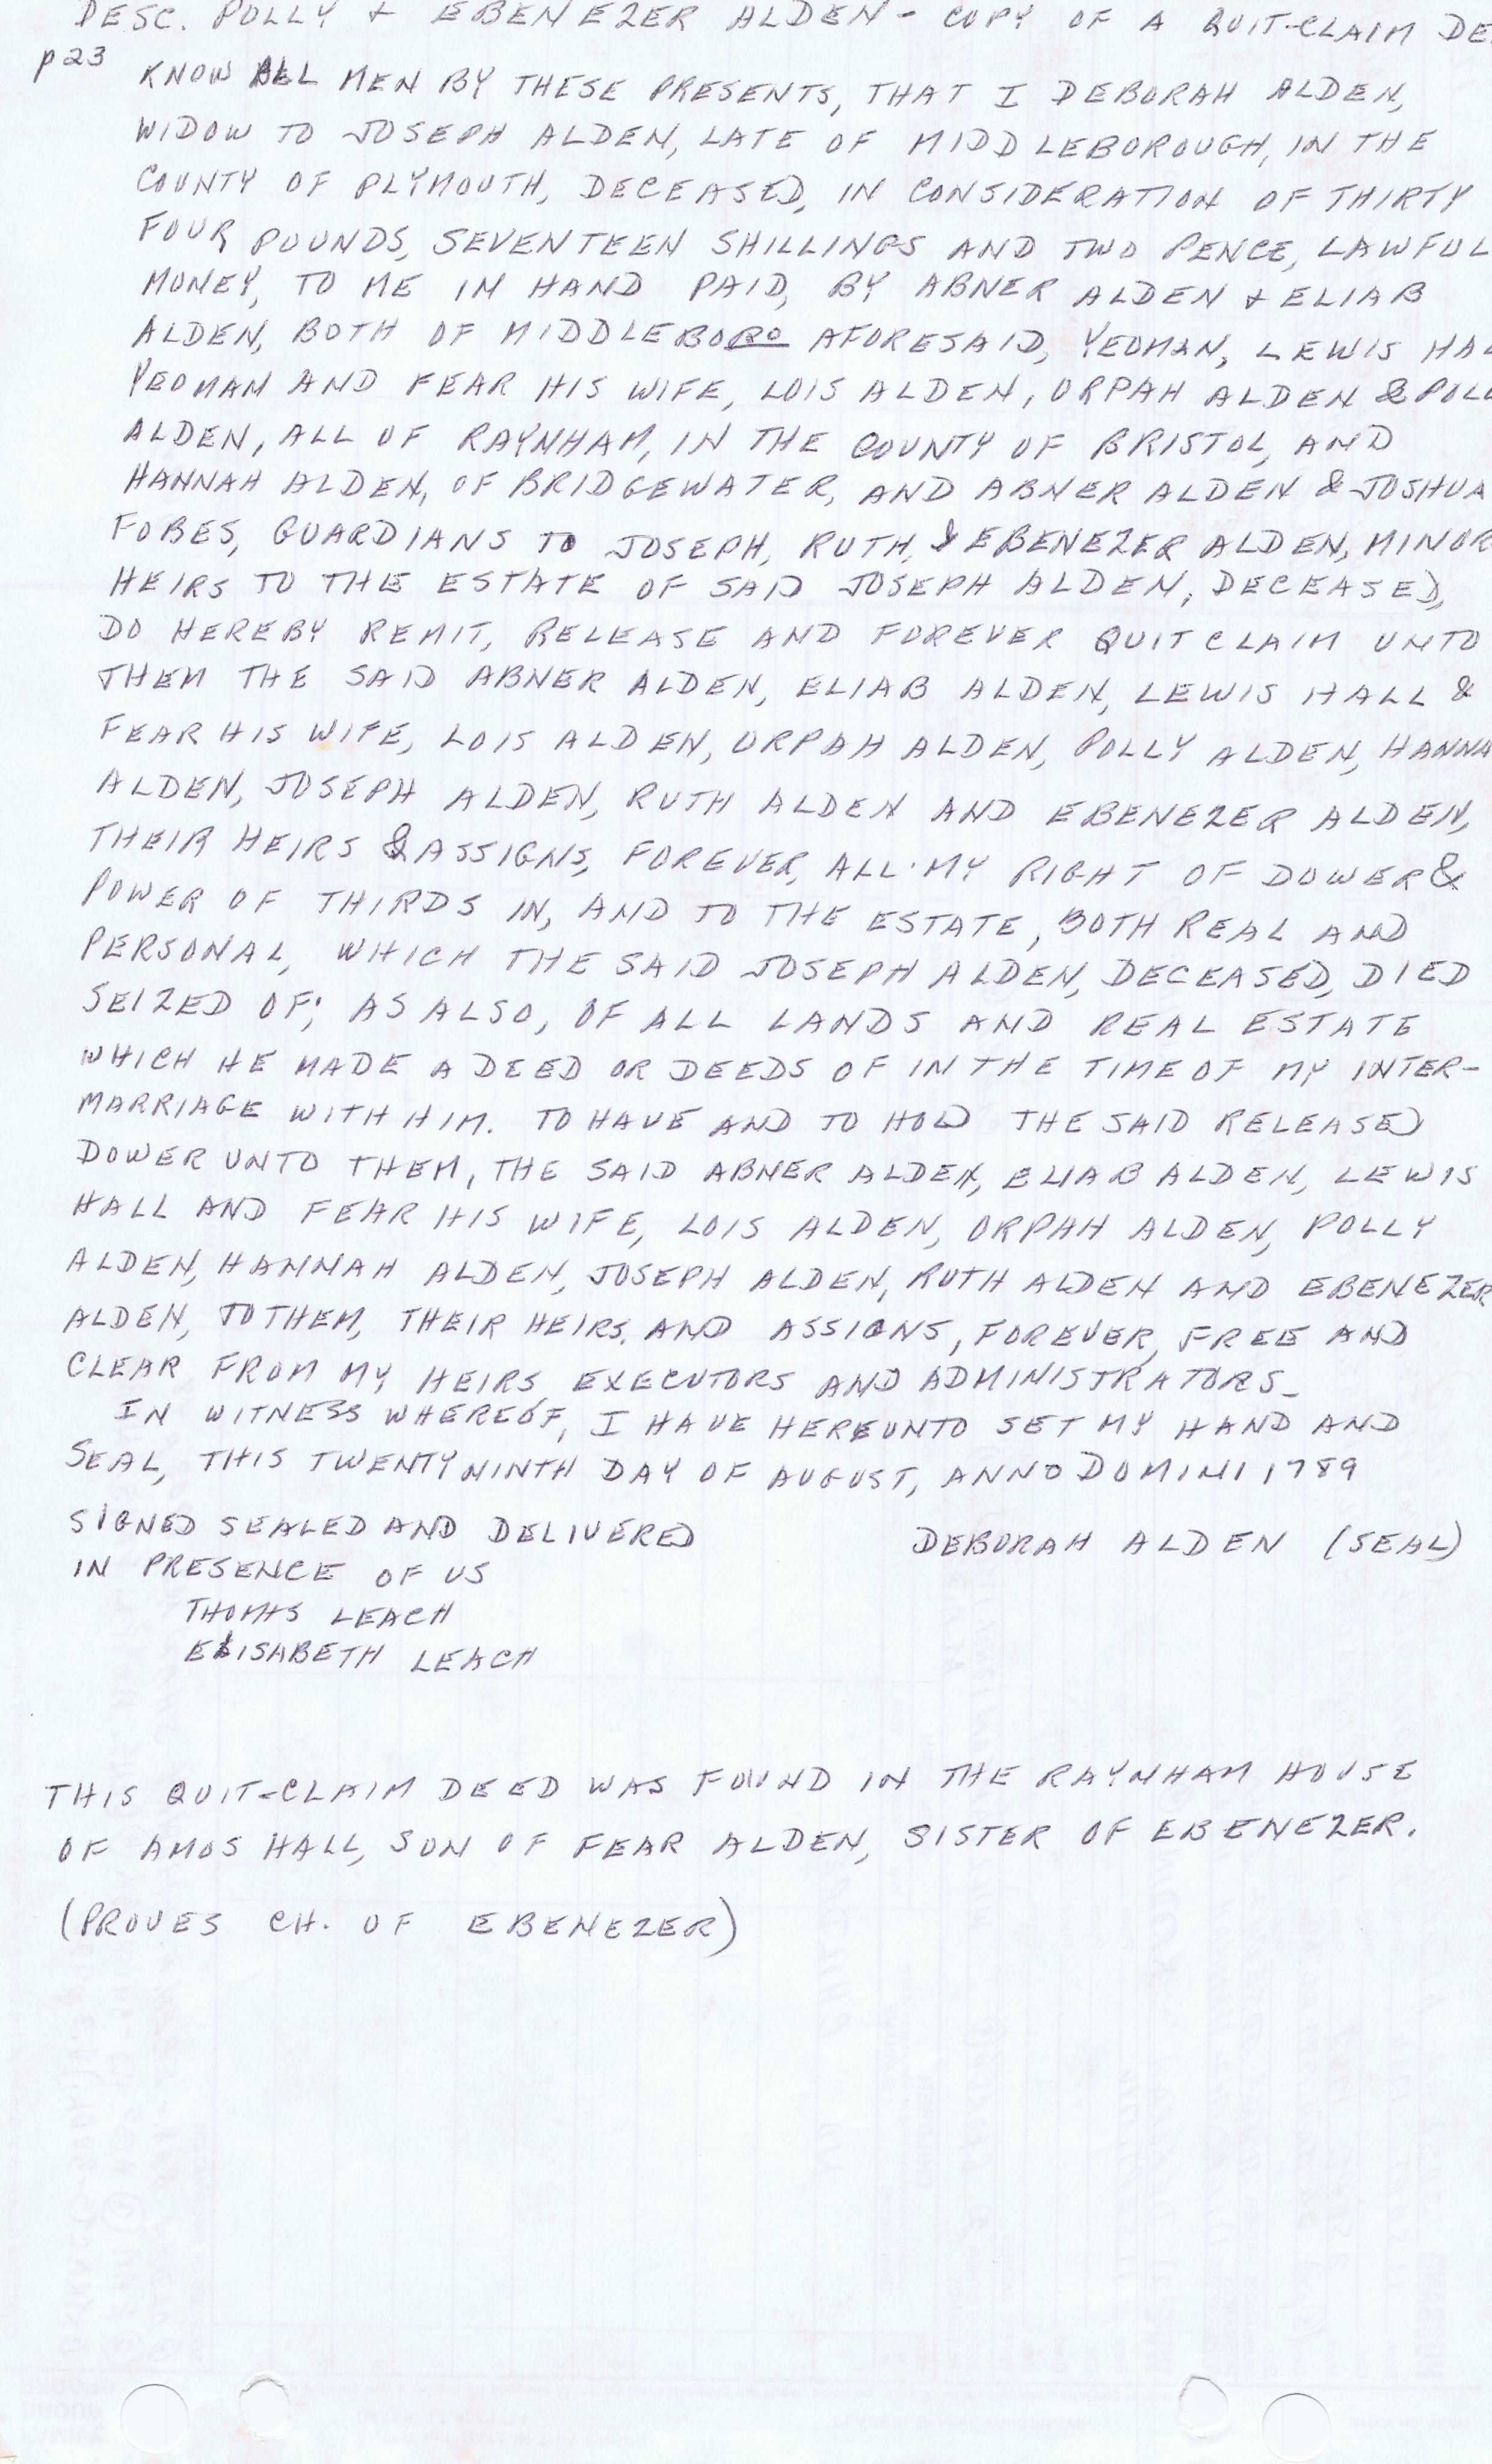 DESC. POLLY & EBENEZER ALDEN - COPY OF A QUIT-CLAIM DE
p23
KNOW ALL MEN BY THESE PRESENTS, THAT I DEBORAH ALDEN,
WIDOW TO JOSEPH ALDEN, LATE OF MIDDLEBOROUGH, IN THE
COUNTY OF PLYMOUTH, DECEASED, IN CONSIDERATION OF THIRTY
FOUR POUNDS, SEVENTEEN SHILLINGS AND TWO PENCE, LAWFUL
MONEY, TO ME IN HAND PAID, BY ABNER ALDEN & ELIAB
ALDEN, BOTH OF MIDDLEBORO AFORESAID, YEOMAN, LEWIS HAL
YEOMAN AND FEAR HIS WIFE, LOIS ALDEN, ORPAH ALDEN & POLL
ALDEN, ALL OF RAYNHAM, IN THE COUNTY OF BRISTOL, AND
HANNAH ALDEN, OF BRIDGEWATER, AND ABNER ALDEN & JOSHUA
FOBES, GUARDIANS TO JOSEPH, RUTH, & EBENEZER ALDEN, MINOR
HEIRS TO THE ESTATE OF SAID JOSEPH ALDEN, DECEASED,
DO HEREBY REMIT, RELEASE AND FOREVER QUITCLAIM UNTO
THEM THE SAID ABNER ALDEN, ELIAB ALDEN, LEWIS HALL &
FEAR HIS WIFE, LOIS ALDEN, ORPAH ALDEN, POLLY ALDEN, HANNA
ALDEN, JOSEPH ALDEN, RUTH ALDEN AND EBENEZER ALDEN,
THEIR HEIRS & ASSIGNS, FOREVER, ALL MY RIGHT OF DOWER &
POWER OF THIRDS IN, AND TO THE ESTATE, BOTH REAL AND
PERSONAL, WHICH THE SAID JOSEPH ALDEN, DECEASED, DIED
SEIZED OF; AS ALSO, OF ALL LANDS AND REAL ESTATE
WHICH HE MADE A DEED OR DEEDS OF IN THE TIME OF MY INTER-
MARRIAGE WITH HIM. TO HAVE AND TO HOLD THE SAID RELEASED
DOWER UNTO THEM, THE SAID ABNER ALDEN, ELIAB ALDEN, LEWIS
HALL AND FEAR HIS WIFE, LOIS ALDEN, ORPAH ALDEN, POLLY
ALDEN, HANNAH ALDEN, JOSEPH ALDEN, RUTH ALDEN AND EBENEZER
ALDEN, TO THEM, THEIR HEIRS, AND ASSIGNS, FOREVER, FREE AND
CLEAR FROM MY HEIRS EXECUTORS AND ADMINISTRATORS_
IN WITNESS WHEREOF, I HAVE HEREUNTO SET MY HAND AND
SEAL, THIS TWENTY NINTH DAY OF AUGUST, ANNO DOMINI 1789
SIGNED SEALED AND DELIVERED DEBORAH ALDEN (SEAL)
IN PRESENCE OF US
THOMAS LEACH
ELISABETH LEACH
THIS QUIT-CLAIM DEED WAS FOUND IN THE RAYNHAM HOUSE
OF AMOS HALL, SON OF FEAR ALDEN, SISTER OF EBENEZER.
(PROVES CH. OF EBENEZER)